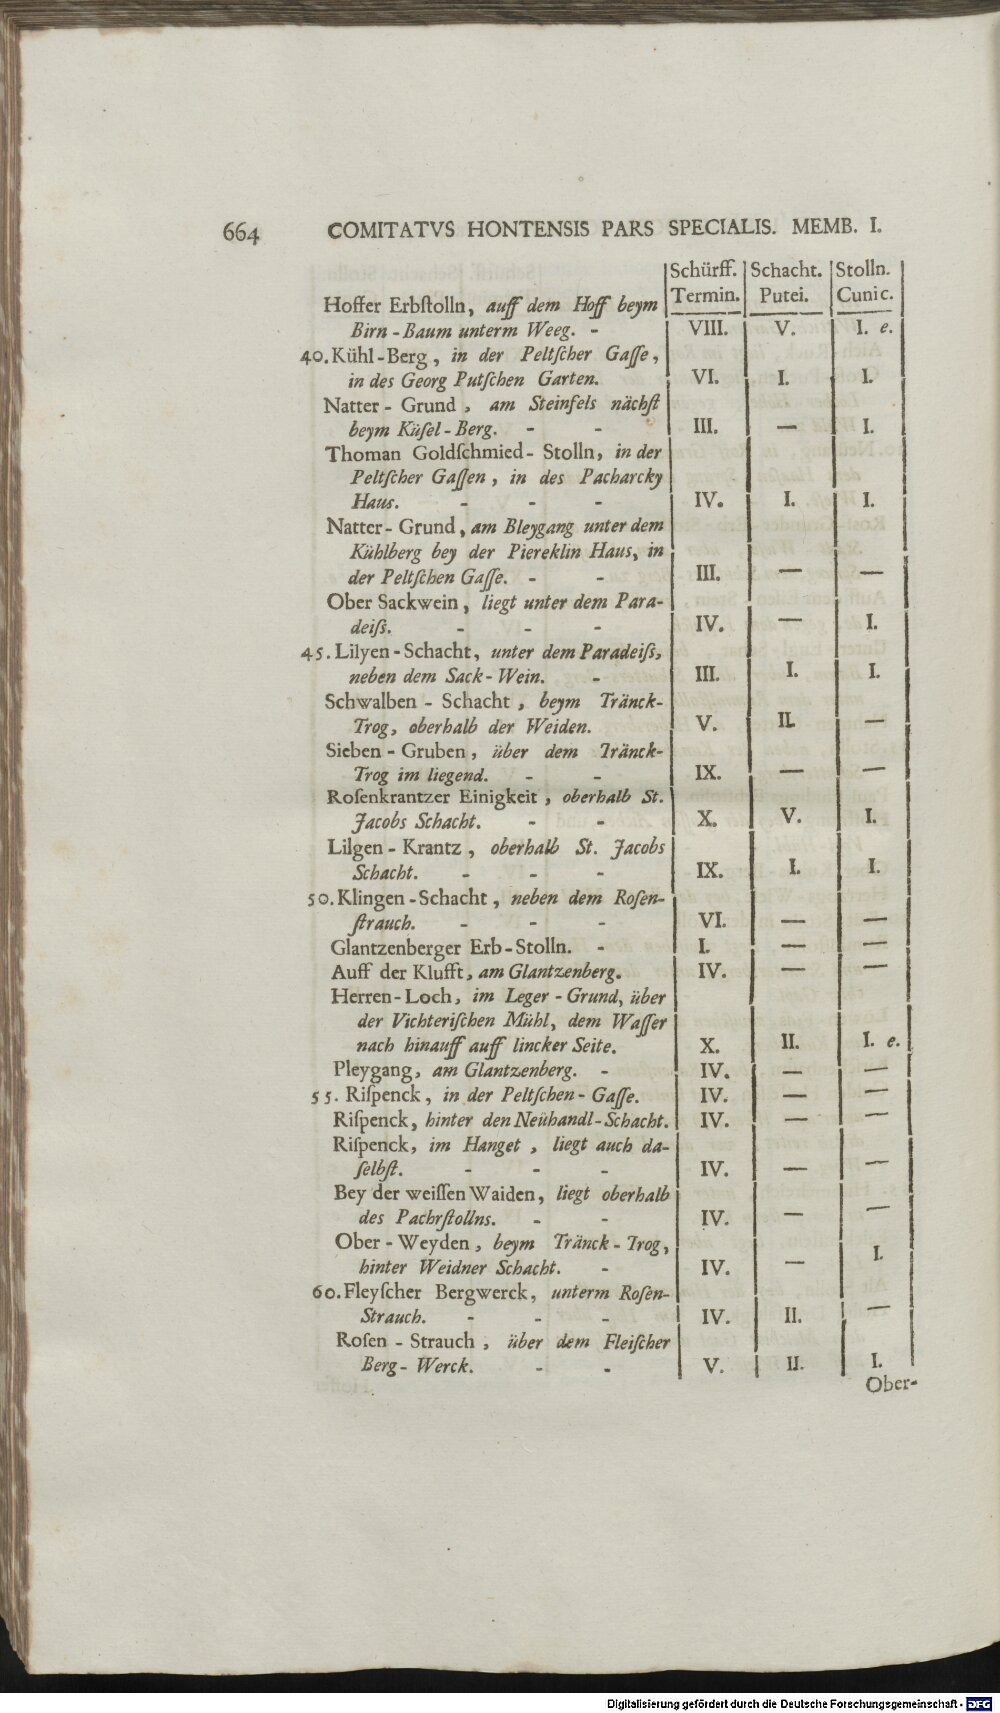 664 COMITATVS HONTENSIS PARS SPECIALIS. MEMB. I.
Schürff. Schacht. Stolln.
Termin. Putei. Cunic.
Hoffer Erbſtolln, auff dem Hoff beym
Birn-Baum unterm Weeg. - VIII. V. I. e.
40. Kühl-Berg, in der Peltſcher Gaſſe,
in des Georg Putſchen Garten. VI. I. I.
Natter-Grund, am Steinfels nächſt
beym Küſel-Berg. - - III. — I.
Thoman Goldſchmied-Stolln, in der
Peltſcher Gaſſen, in des Pacharcky
Haus. - - - IV. I. I.
Natter-Grund, am Bleygang unter dem
Kühlberg bey der Piereklin Haus, in
der Peltſchen Gaſſe. - - III. — —
Ober Sackwein, liegt unter dem Para-
deiſs. - - - IV. — I.
45. Lilyen-Schacht, unter dem Paradeiſs,
neben dem Sack-Wein. - III. I. I.
Schwalben-Schacht, beym Tränck-
Trog, oberhalb der Weiden. V. II. —
Sieben-Gruben, über dem Tränck-
Trog im liegend. - - IX. — —
Roſenkrantzer Einigkeit, oberhalb St.
Jacobs Schacht. - - X. V. I.
Lilgen-Krantz, oberhalb St. Jacobs
Schacht. - - - IX. I. I.
50. Klingen-Schacht, neben dem Roſen-
ſtrauch. - - - VI. — —
Glantzenberger Erb-Stolln. - I. — —
Auff der Klufft, am Glantzenberg. IV. — —
Herren-Loch, im Leger-Grund, über
der Vichteriſchen Mühl, dem Waſſer
nach hinauff auff lincker Seite. X. II. I. e.
Pleygang, am Glantzenberg. - IV. — —
55. Riſpenck, in der Peltſchen-Gaſſe. IV. — —
Riſpenck, hinter den Neühandl-Schacht. IV. — —
Riſpenck, im Hanget, liegt auch da-
ſelbſt. - - - IV. — —
Bey der weiſſen Waiden, liegt oberhalb
des Pachrſtollns. - - IV. — —
Ober-Weyden, beym Tränck-Trog,
hinter Weidner Schacht. - IV. — I.
60. Fleyſcher Bergwerck, unterm Roſen-
Strauch. - - - IV. II. —
Roſen-Strauch, über dem Fleiſcher
Berg-Werck. - - V. II. I.
Ober-
Digitalisierung gefördert durch die Deutsche Forschungsgemeinschaft - DFG